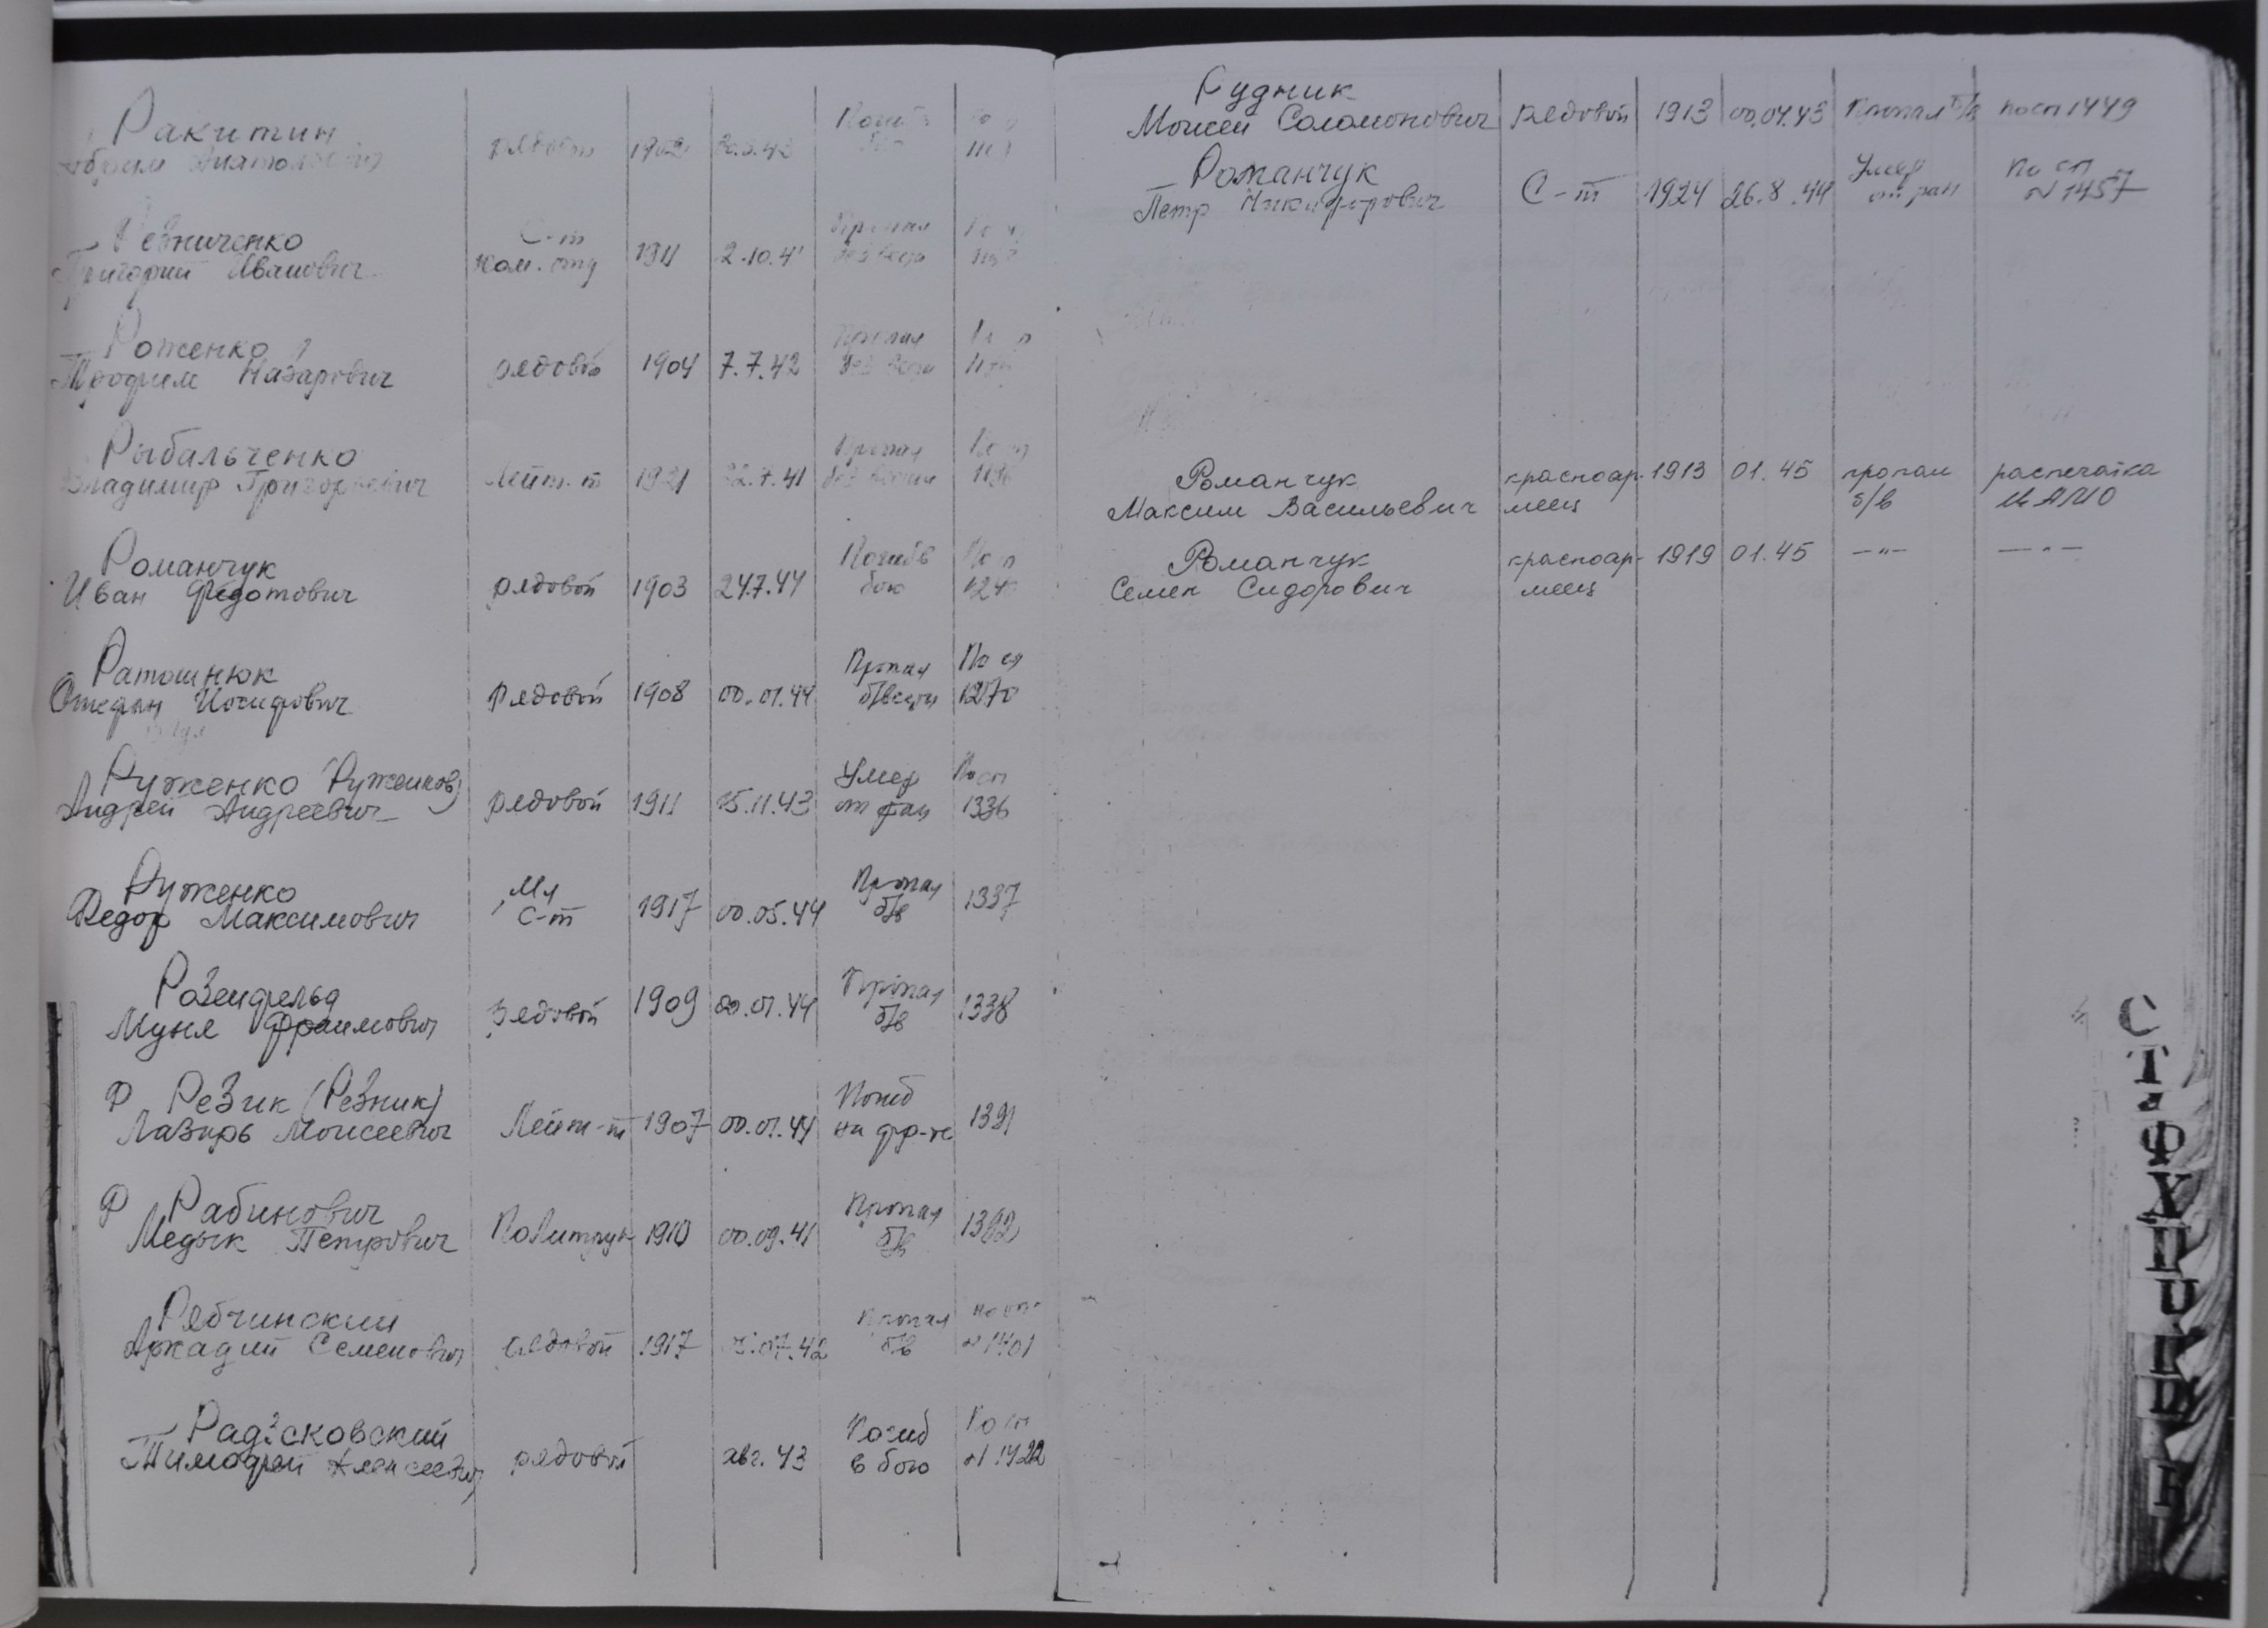 Ракитин
рядовой 1902
Резниченко
Григорий Иванович
С-т
Ком. отд 1911 2.10.41 Пропал без вести
Роженко
Трофим Назарович рядовой 1904 7.7.42 Пропал без вести
Рыбальченко
Владимир Григорьевич Лейт-т 1921 22.7.41 Пропал без вести
Романчук
Иван Федотович рядовой 1903 24.7.44 Погиб в бою
Ратошнюк
Степан Иосифович рядовой 1908 00.01.44 Пропал б/вести По сп 1270
Руженко (Руженков)
Андрей Андреевич рядовой 1911 15.11.43 Умер от ран По сп 1336
Руженко
Федор Максимович Мл С-т 1917 00.05.44 Пропал б/в 1337
Розенфельд
Муня Фраимович Рядовой 1909 00.01.44 Пропал б/в 1338
Ф Резик (Резник)
Лазирь Моисеевич Лейт-т 1907 00.01.44 Погиб на фр-те 1391
Ф Рабинович
Медык Петрович Политрук 1910 00.09.41 Пропал б/в 1392
Рябчинский
Аркадий Семенович рядовой 1917 07.42 Пропал б/в По сп № 1401
Радзсковский
Тимофей Алексеевич рядовой авг. 43 Погиб в бою По сп № 1422
Рудник
Моисей Соломонович Рядовой 1913 00.04.43 Пропал б/в по сп 1449
Романчук
Петр Никифорович С-т 1924 26.8.44 Умер от ран По сп № 1457
Романчук
Максим Васильевич красноармеец 1913 01.45 пропал б/в распечатка ЦАМО
Романчук
Семен Сидорович красноар-меец 1919 01.45 —"— —"—
С
Т
Ф
Х